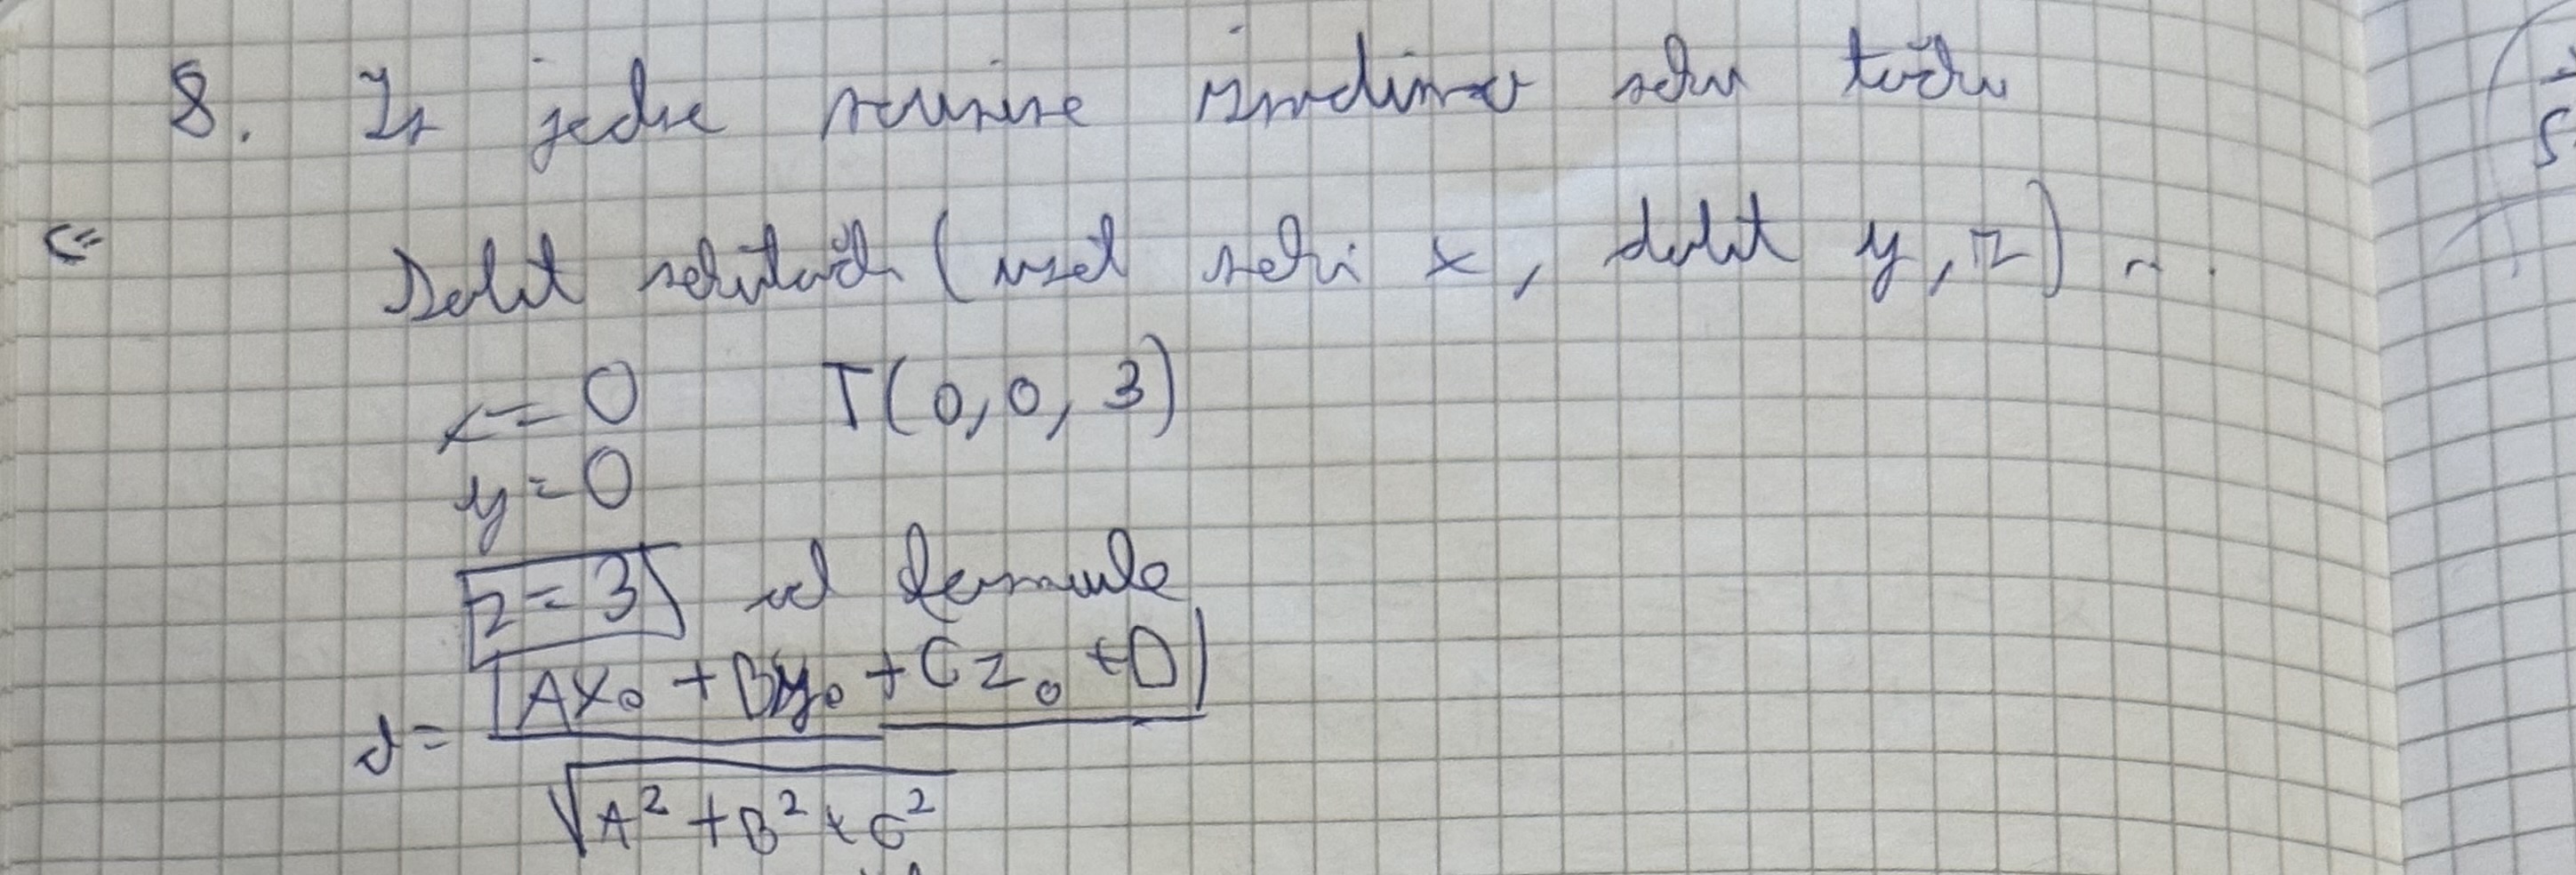 8. Iz jedne ravnine izvadimo neku točku
<= Dobit neku točku (uzet neki x, dobit y, z) ...
x = 0 T(0, 0, 3)
y = 0
z = 3 od formule
d = |Ax₀ + By₀ + Cz₀ + D|
√A² + B² + C²